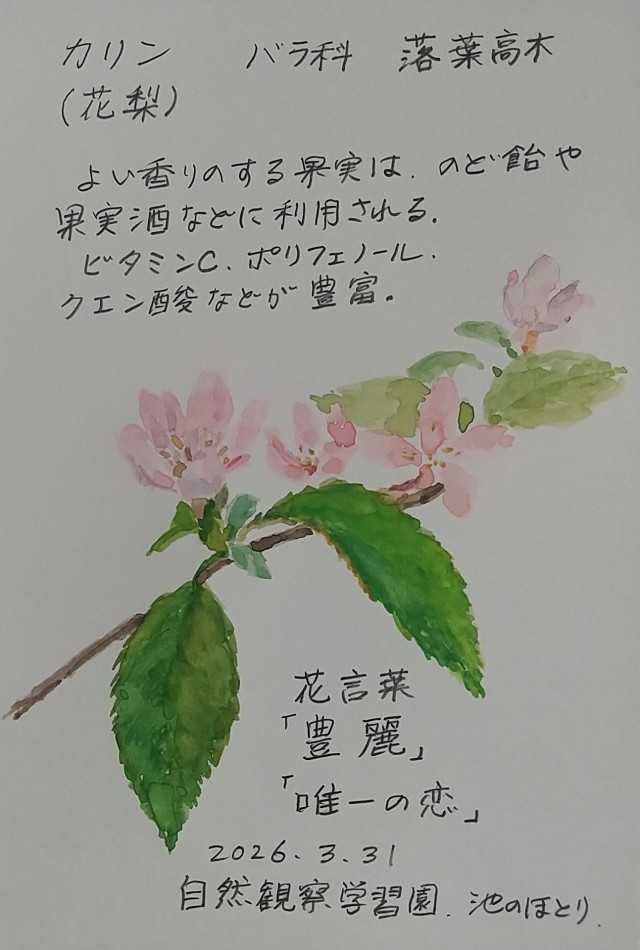 カリン　バラ科　落葉高木
(花梨)
よい香りのする果実は、のど飴や
果実酒などに利用される。
ビタミンC、ポリフェノール、
クエン酸などが豊富。
花言葉
「豊麗」
「唯一の恋」
2026.3.31
自然観察学習園、池のほとり.